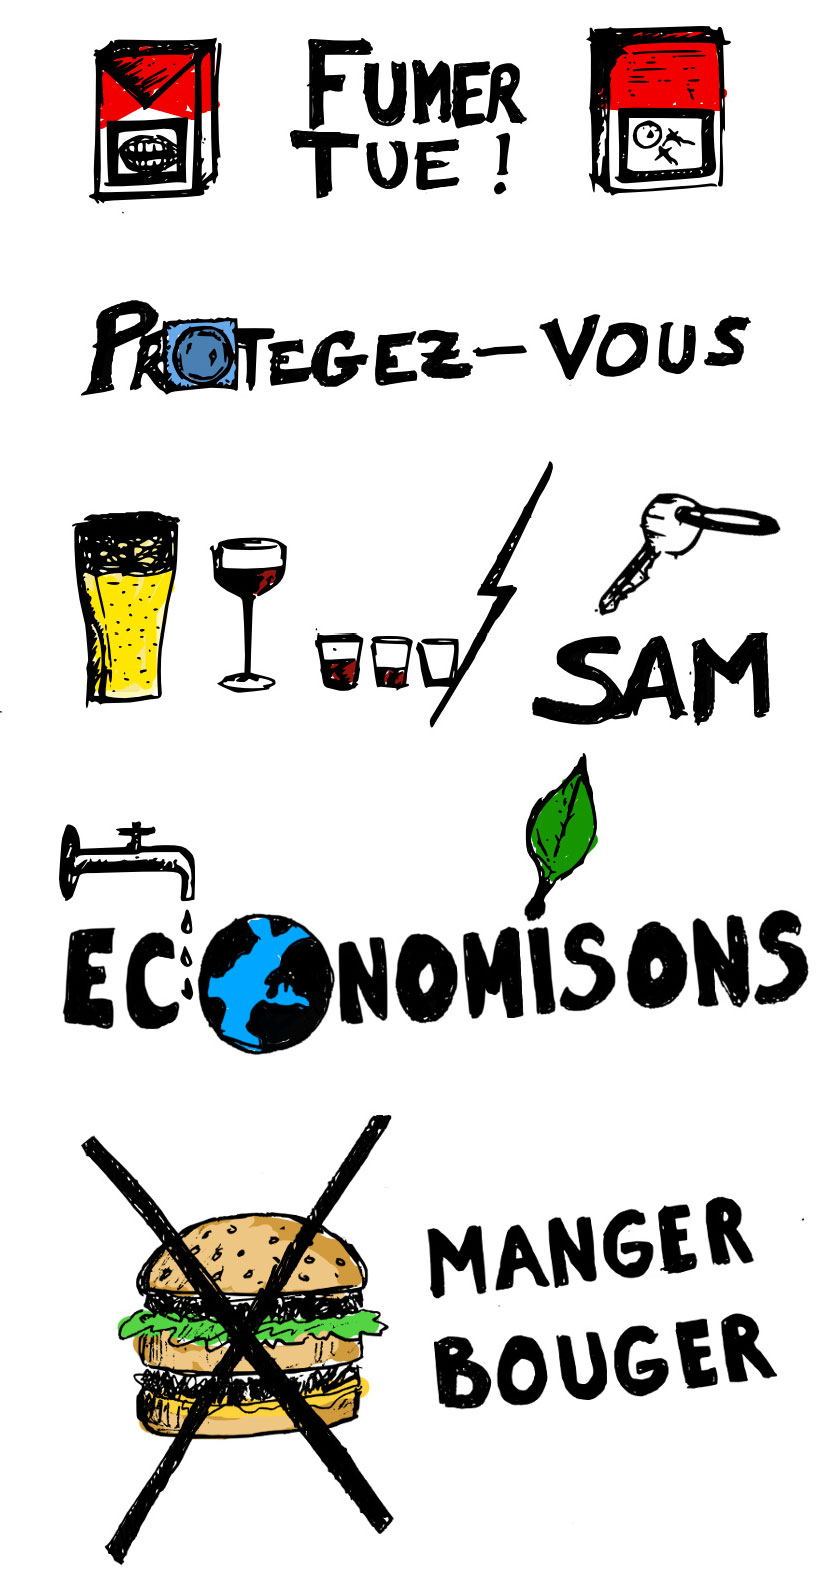 FUMER
TUE !
PROTEGEZ-VOUS
SAM
ECONOMISONS
MANGER
BOUGER